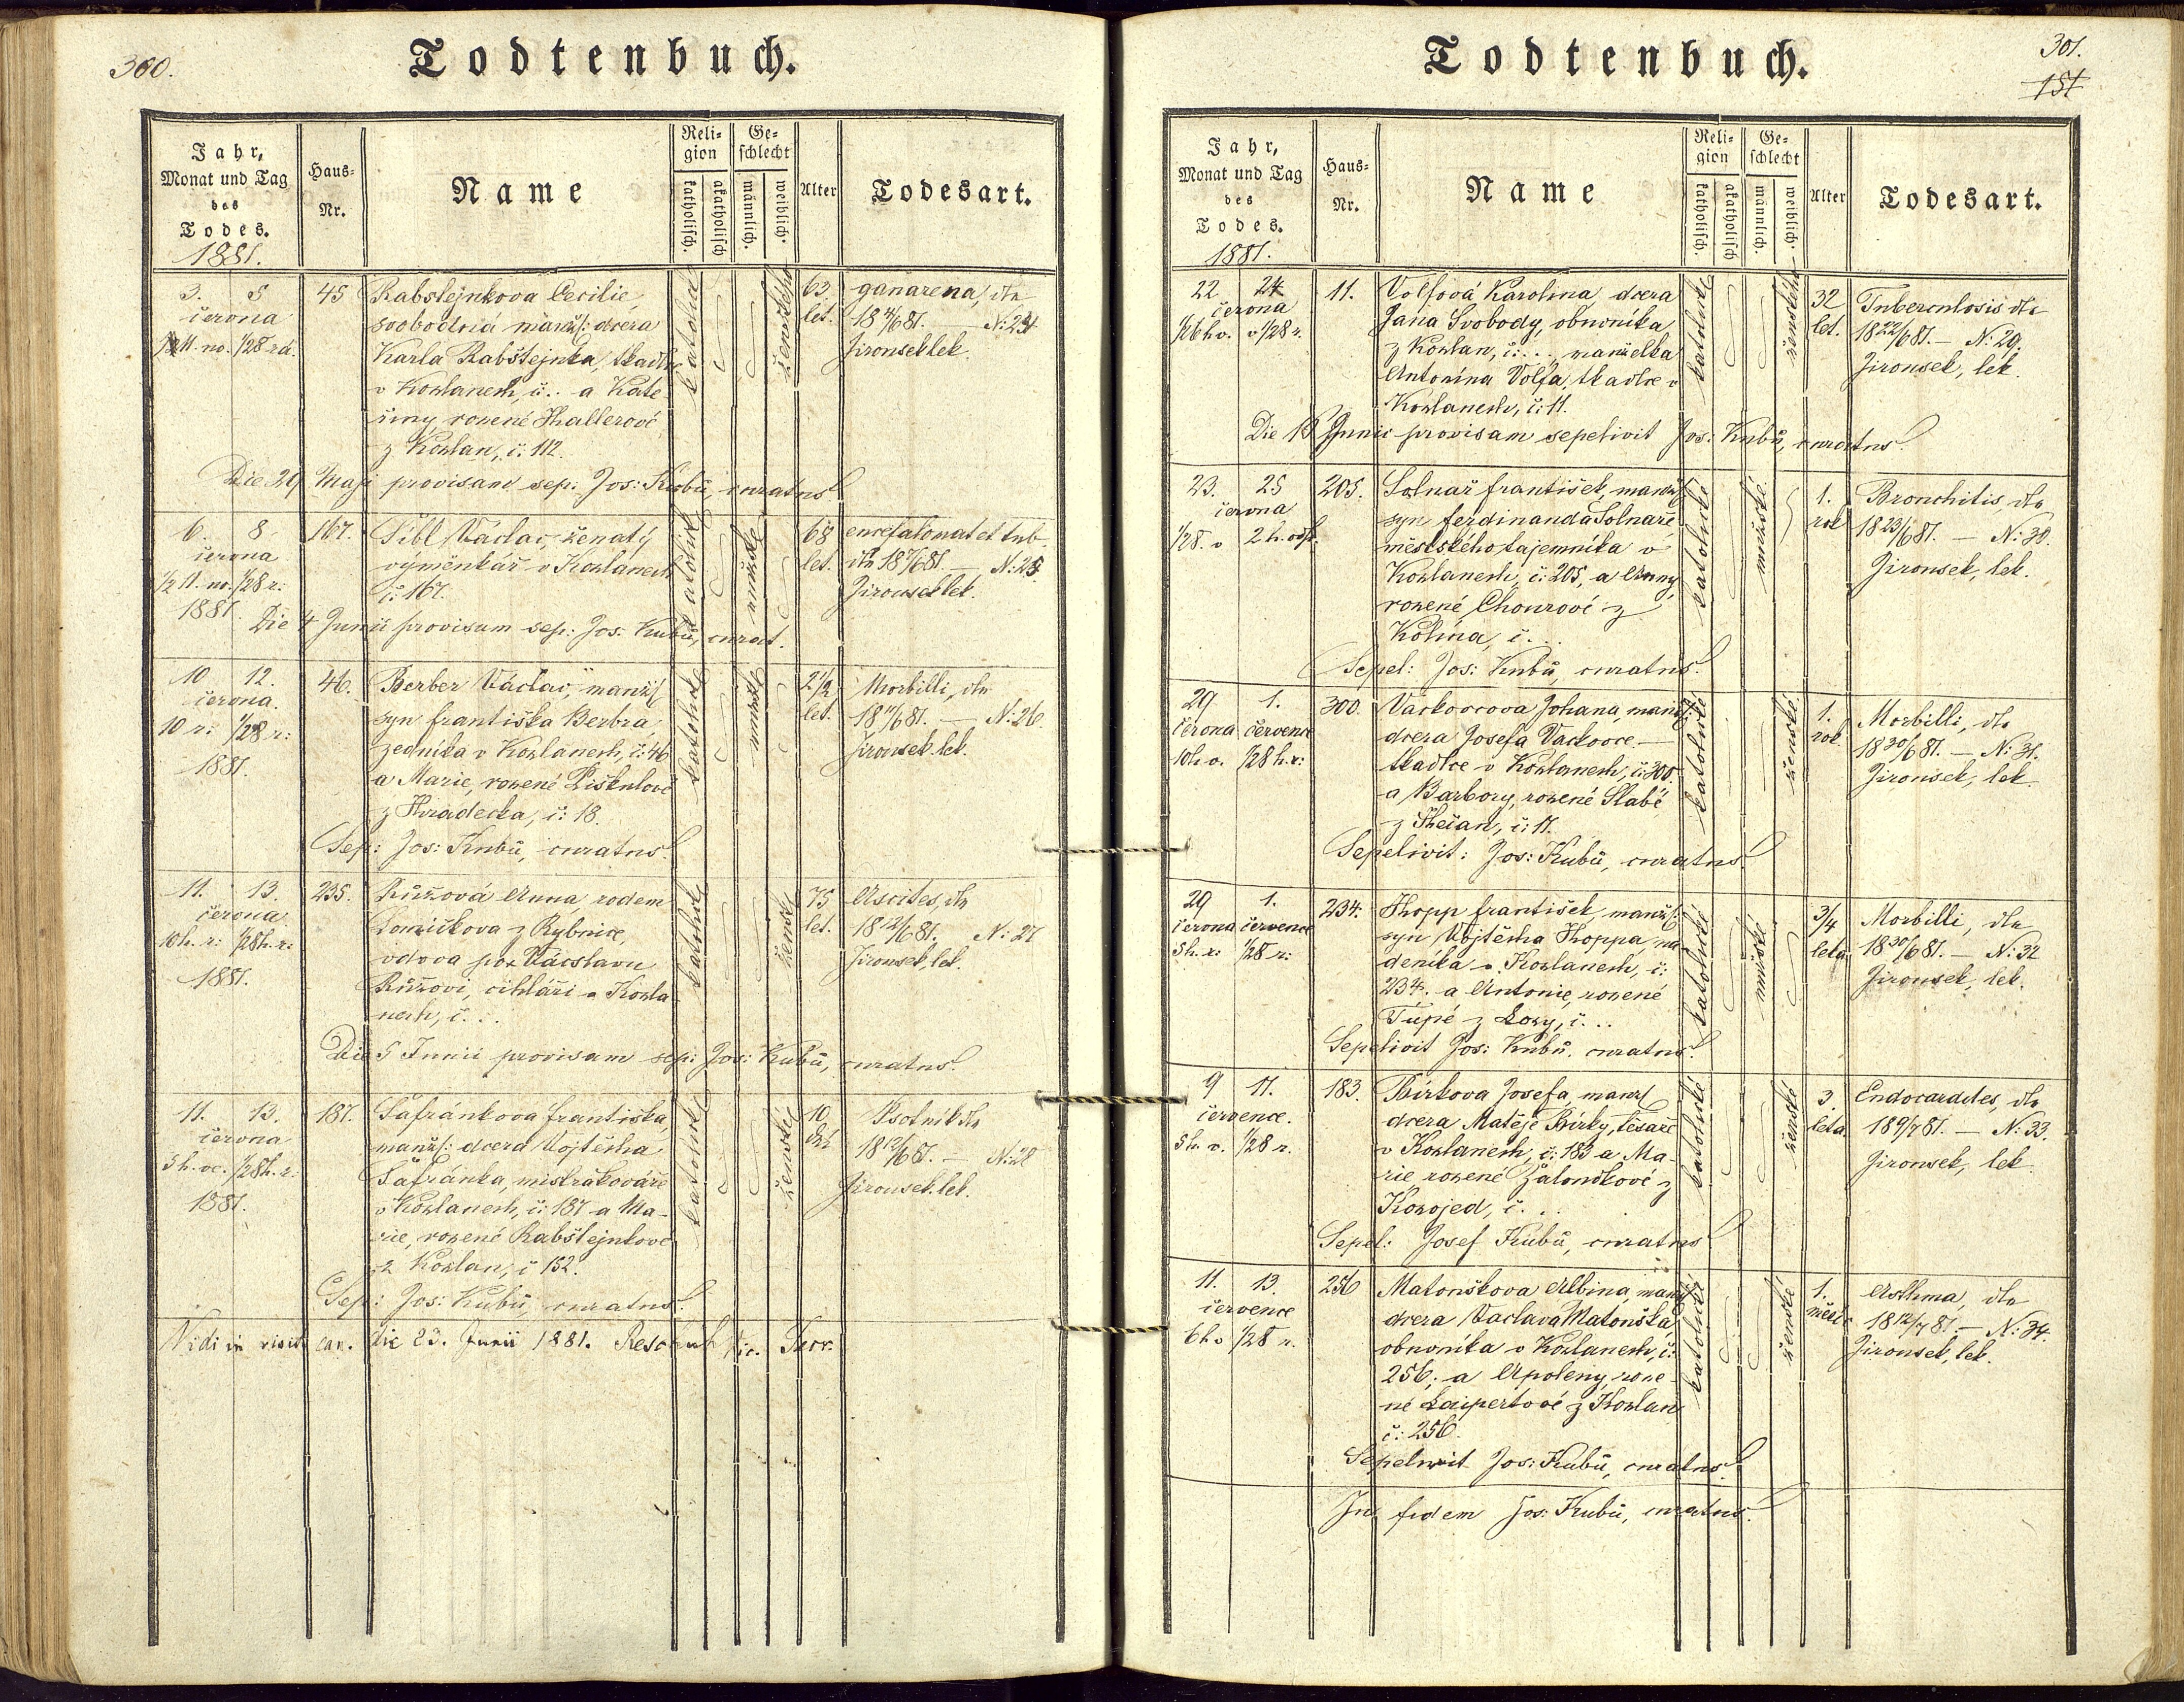 360.
Todtenbuch.
Jahr,
Monat und Tag
des
Todes.
1881.
Haus-
Nr.
Name
Reli-
gion
katholisch.
akatholisch
Ge-
schlecht
männlich.
weiblich.
Alter
Todesart.
3. 5
června
1/2 11. no. 1/28 rá.
45
Rabštejnkova Cecilie
svobodná manž: dcera
Karla Rabštejnka, tkadlce
v Košlanech, č... a Kate
řiny, rozené Hallerové
z Košlan, č: 112.
katolické
ženského
63
let.
ganarena, dto
18 4/6 81. N: 24
Jirousek lek.
Die 29 Maji provisam sep: Jos: Kubů, curatus
6. 8
června
1/2 11. no. 1/28 r:
1881.
167.
Šibl Václav, ženatý
výměnkář v Košlanech
č: 167.
katolick
mužské
68
let.
encefalomat et tub.
dto 18 7/6 81. — N: 25
Jirousek lek.
Die 4 Junii provisum sep: Jos: Kubů, curat.
10 12.
června.
10 r: 1/28 r:
1881.
46.
Berber Václav, manž:
syn františka Berbra,
zedníka v Košlanech, č: 46
a Marie, rozené Piškulové
z Hradecka, č: 18.
katolické
mužské
2 1/2
let.
Morbilli, dto
18 11/6 81. — N: 26.
Jirousek lek.
Sep: Jos: Kubů, curatus.
11. 13.
června
10 h. r: 1/28 h. r:
1881.
235.
Růžová Anna, rodem
Lomičkova z Rybnice,
vdova po Václavu
Růžovi, cihláři v Košla
nech, č...
katolické
ženské
75
let.
Ascites, dto
18 12/6 81. N: 27
Jirousek, lek.
Die 5 Junii provisam sep: Jos: Kubů, curatus.
11. 13.
června
5 h. ve. 1/28 h. r:
1881.
187.
Šafránkova františka,
manž: dcera Vojtěcha
Šafránka, mistra kováře
v Košlanech, č: 187 a Ma-
rie, rozené Rabštejnkové
z Košlan, č 152.
katolické
ženské
10.
dní
Psotník dto
18 12/6 81. — N: 28
Jirousek lek.
Sep: Jos: Kubů, curatus.
Vidi in visit. can. die 23. Junii 1881. Vic. Forr.
301.
151
Todtenbuch.
Jahr,
Monat und Tag
des
Todes.
1881.
Haus-
Nr.
Name
Reli-
gion
katholisch.
akatholisch
Ge-
schlecht
männlich.
weiblich.
Alter
Todesart.
22 24
června
1/2 6 h v. v 1/28 r.
11.
Volfová Karolina, dcera
Jana Svobody, obuvníka
z Košlan, č:..., manželka
Antonína Volfa, tkadlce v
Košlanech, č: 11.
katolické
ženského
32
let.
Tuberculosis dto
18 22/6 81. — N: 29.
Jirousek, lek.
Die 18 Junii provisam sepelivit Jos: Kubů, curatus.
23. 25
června
1/28. v 2 h. odp.
205.
Solnař františek, manž:
syn ferdinanda Solnaře
městského tajemníka v
Košlanech, č: 205, a Anny,
rozené Chourové z
Kolína, č...
katolické
mužské
1.
rok
Bronchitis, dto
18 23/6 81. — N: 30.
Jirousek, lek.
Sepel: Jos: Kubů, curatus.
29 1.
června července
10 h v. 1/28 h. r:
300.
Vackovcova Johana, manž:
dcera Josefa Vackovce —
tkadlce v Košlanech, č: 300.
a Barbory, rozené Slabé
z Třečan, č: 17.
katolické
ženské
1.
rok
Morbilli, dto
18 30/6 81. — N: 31.
Jirousek, lek
Sepelivit: Jos: Kubů, curatus.
29 1.
června července
5 h. r: 1/28 r:
234.
Hopp františek, manž:
syn Vojtěcha Hoppa, ná
deníka v Košlanech, č:
234. a Antonie, rozené
Tupé z Lozy, č...
katolické
mužské
3/4
leta
Morbilli, dto
18 30/6 81. — N: 32
Jirousek, lek.
Sepelivit Jos: Kubů, curatus.
9 11.
července.
5 h. v. 1/28 r.
183.
Bírkova Josefa, manž:
dcera Matěje Bírky, tesaře
v Košlanech, č: 183 a Ma-
rie rozené Žaloudkové z
Kozojed, č...
katolické
ženské
3
léta
Endocardites, dto
18 9/7 81. — N: 33.
Jirousek, lek.
Sepel: Josef Kubů, curatus
11. 13.
července
6 h v 1/28 r.
256
Matouškova Albina, manž:
dcera Vaclava Matouška
obuvníka v Košlanech, č:
256; a Apoleny, roze-
né Laipertové z Košlan
č: 256.
katolické
ženské
1.
měsíc
Asthma, dto
18 12/7 81. — N: 34.
Jirousek, lek.
Sepelivit Jos: Kubů, curatus.
In fidem Jos: Kubů, curatus.